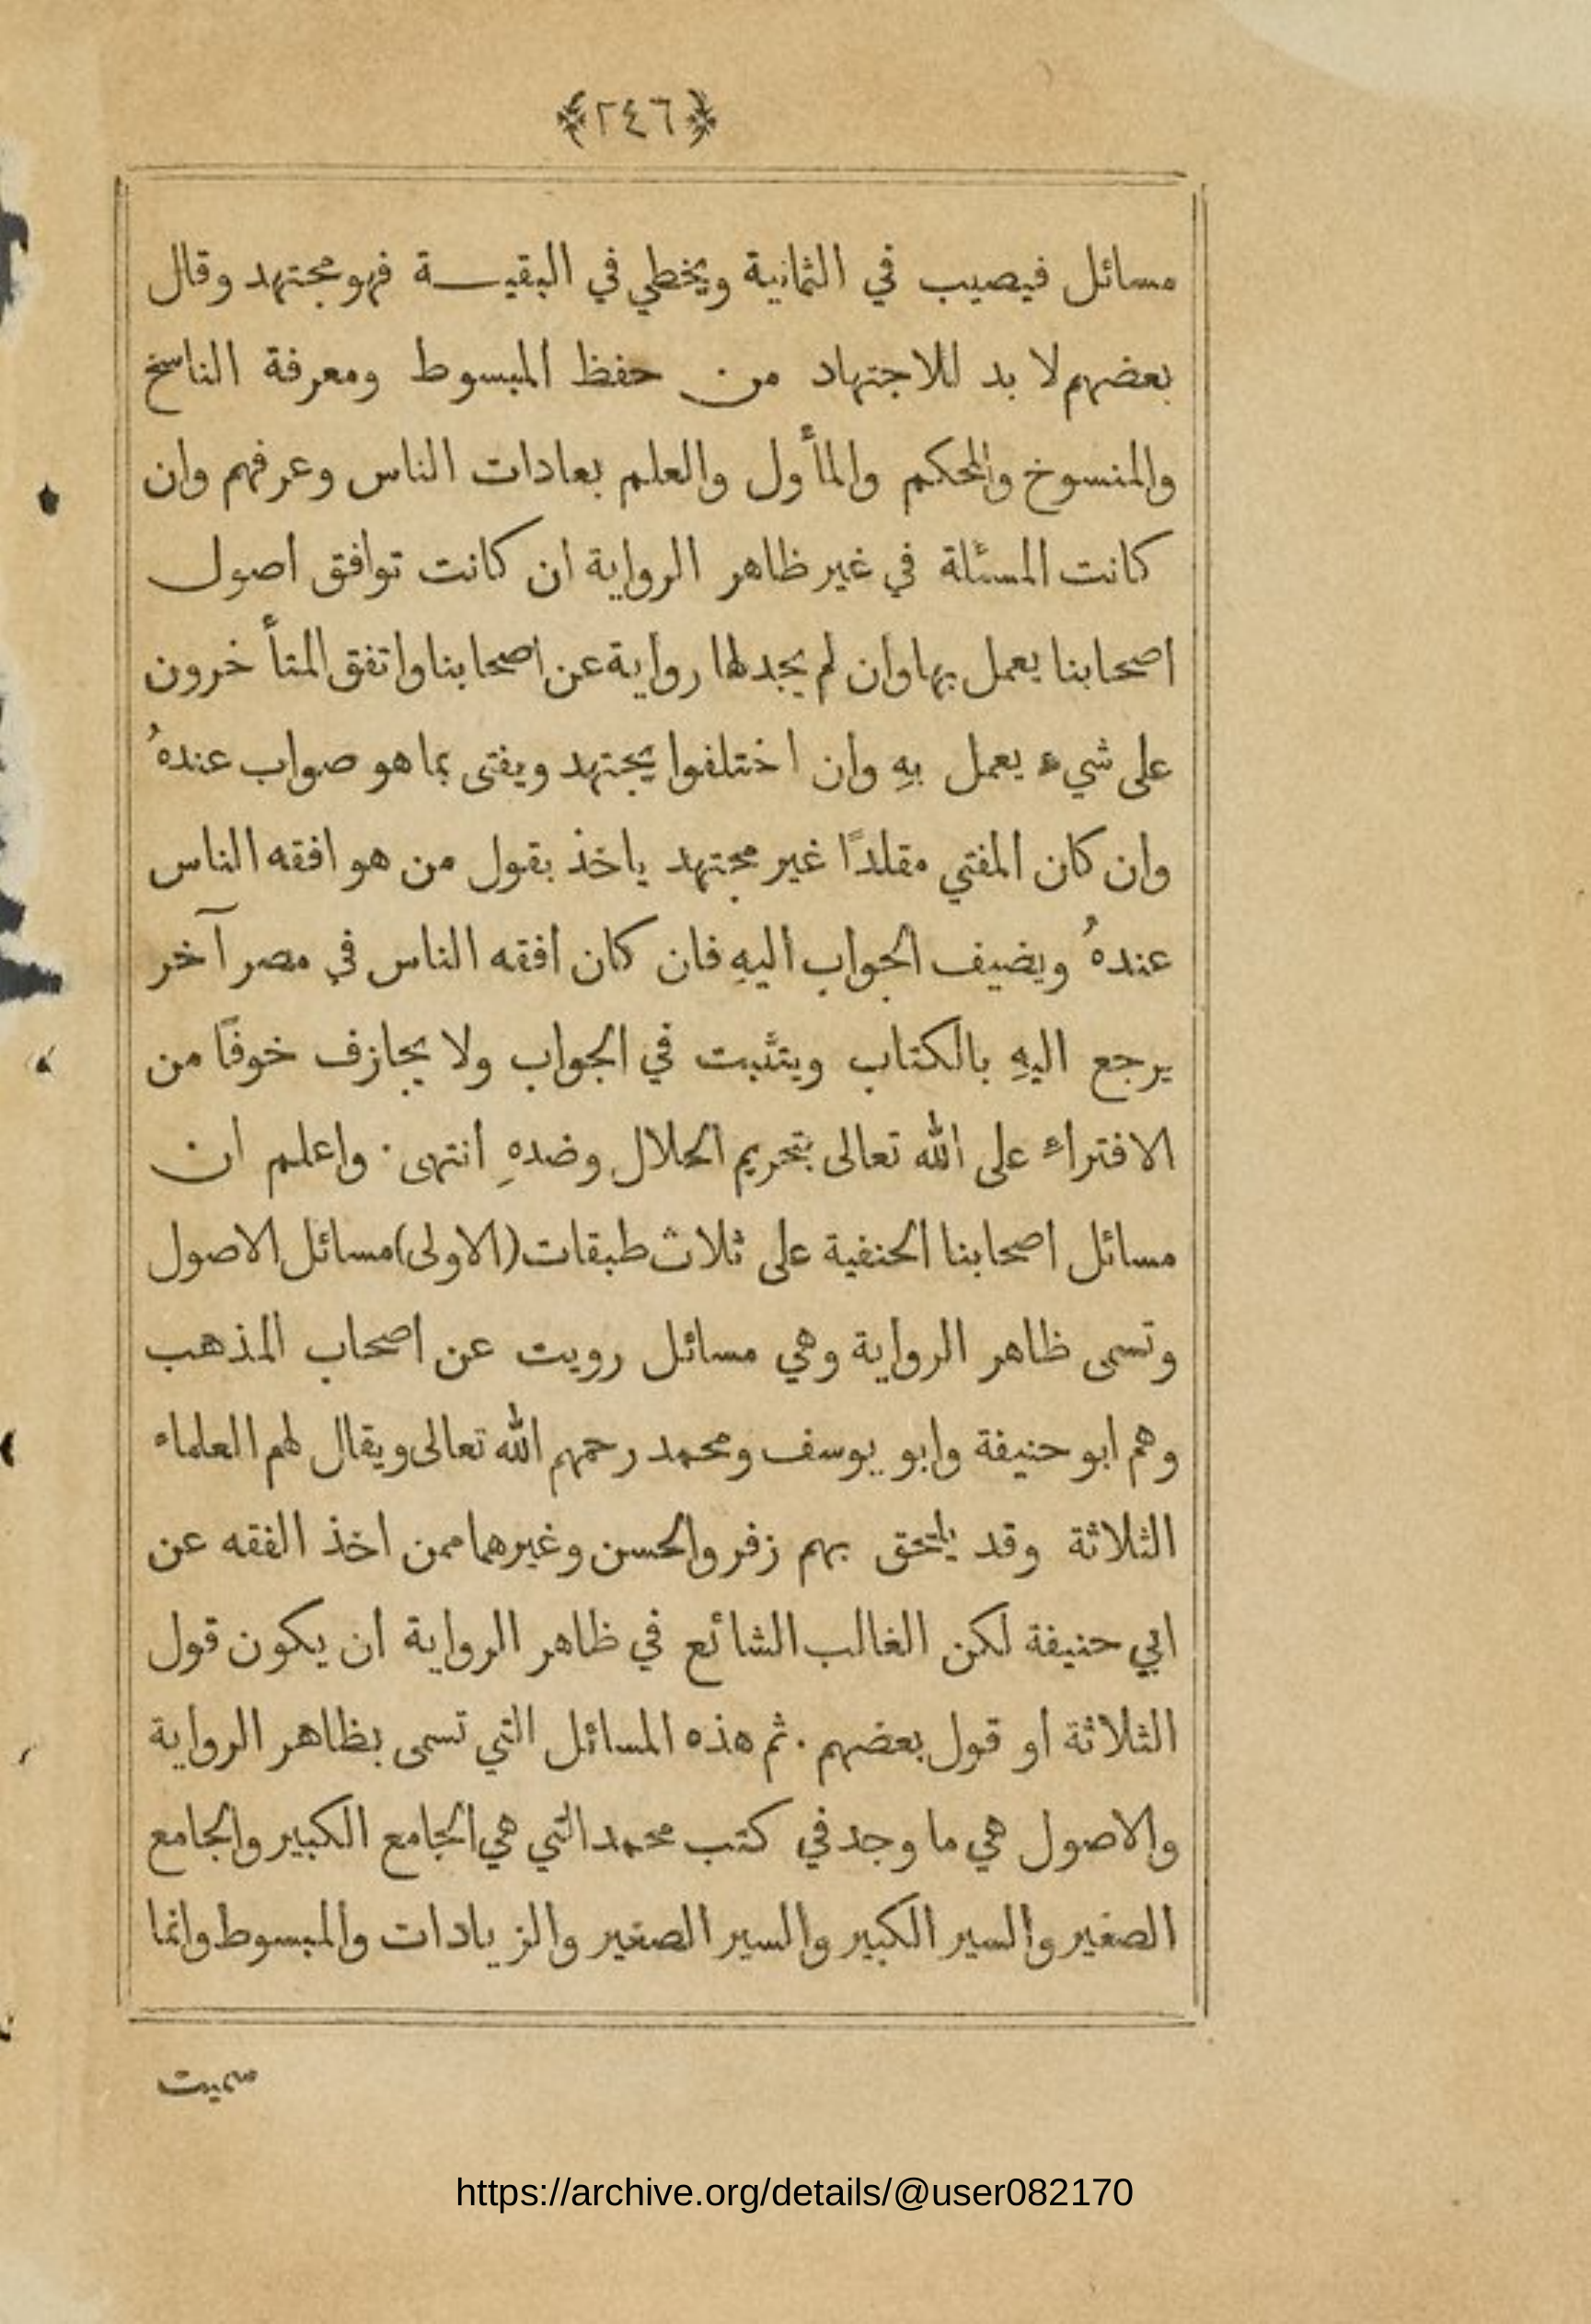 ﴿٢٤٦﴾
مسائل فيصيب في الثمانية ويخطي في البقيـــة فهو مجتهد وقال
بعضهم لا بد للاجتهاد من حفظ المبسوط ومعرفة الناسخ
والمنسوخ والمحكم والمأول والعلم بعادات الناس وعرفهم وان
كانت المسئلة في غير ظاهر الرواية ان كانت توافق اصول
اصحابنا يعمل بها وان لم يجد لها رواية عن اصحابنا واتفق المتأخرون
على شيء يعمل بهِ وان اختلفوا يجتهد ويفتى بما هو صواب عندهُ
وان كان المفتي مقلدًا غير مجتهد ياخذ بقول من هو افقه الناس
عندهُ ويضيف الجواب اليهِ فان كان افقه الناس في مصر آخر
يرجع اليهِ بالكتاب ويتثبت في الجواب ولا يجازف خوفًا من
الافتراء على الله تعالى بتحريم الحلال وضدهِ انتهى · واعلم ان
مسائل اصحابنا الحنفية على ثلاث طبقات (الاولى) مسائل الاصول
وتسمى ظاهر الرواية وهي مسائل رويت عن اصحاب المذهب
وهم ابو حنيفة وابو يوسف ومحمد رحمهم الله تعالى ويقال لهم العلماء
الثلاثة وقد يلتحق بهم زفر والحسن وغيرهما ممن اخذ الفقه عن
ابي حنيفة لكن الغالب الشائع في ظاهر الرواية ان يكون قول
الثلاثة او قول بعضهم · ثم هذه المسائل التي تسمى بظاهر الرواية
والاصول هي ما وجد في كتب محمد التي هي الجامع الكبير والجامع
الصغير والسير الكبير والسير الصغير والزيادات والمبسوط وانما
سميت
https://archive.org/details/@user082170